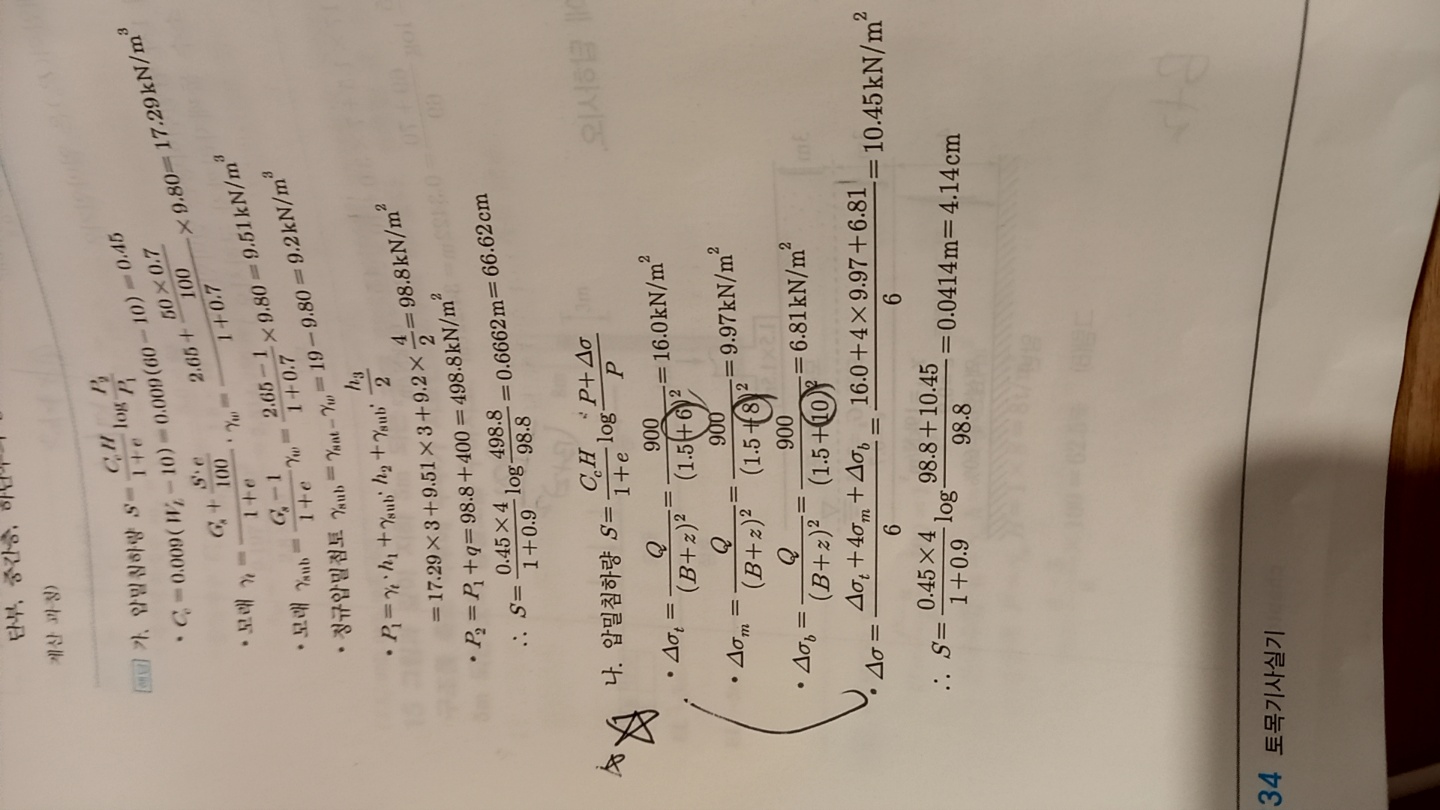 계산 과정)
해답 가. 압밀침하량 S = \frac{C_c H}{1+e} \log \frac{P_2}{P_1}
• C_c = 0.009(W_L − 10) = 0.009(60 − 10) = 0.45
• 모래 γ_t = \frac{G_s + \frac{S·e}{100}}{1+e} · γ_w = \frac{2.65 + \frac{50×0.7}{100}}{1+0.7} × 9.80 = 17.29kN/m³
• 모래 γ_sub = \frac{G_s−1}{1+e} γ_w = \frac{2.65−1}{1+0.7} × 9.80 = 9.51kN/m³
• 정규압밀점토 γ_sub = γ_sat − γ_w = 19 − 9.80 = 9.2kN/m³
• P_1 = γ_t·h_1 + γ_sub·h_2 + γ_sub·\frac{h_3}{2}
= 17.29×3 + 9.51×3 + 9.2×\frac{4}{2} = 98.8kN/m²
• P_2 = P_1 + q = 98.8 + 400 = 498.8kN/m²
∴ S = \frac{0.45×4}{1+0.9} \log \frac{498.8}{98.8} = 0.6662m = 66.62cm
나. 압밀침하량 S = \frac{C_c H}{1+e} \log \frac{P+Δσ}{P}
• Δσ_t = \frac{Q}{(B+z)²} = \frac{900}{(1.5+6)²} = 16.0kN/m²
• Δσ_m = \frac{Q}{(B+z)²} = \frac{900}{(1.5+8)²} = 9.97kN/m²
• Δσ_b = \frac{Q}{(B+z)²} = \frac{900}{(1.5+10)²} = 6.81kN/m²
• Δσ = \frac{Δσ_t + 4σ_m + Δσ_b}{6} = \frac{16.0 + 4×9.97 + 6.81}{6} = 10.45kN/m²
∴ S = \frac{0.45×4}{1+0.9} \log \frac{98.8+10.45}{98.8} = 0.0414m = 4.14cm
34 토목기사실기